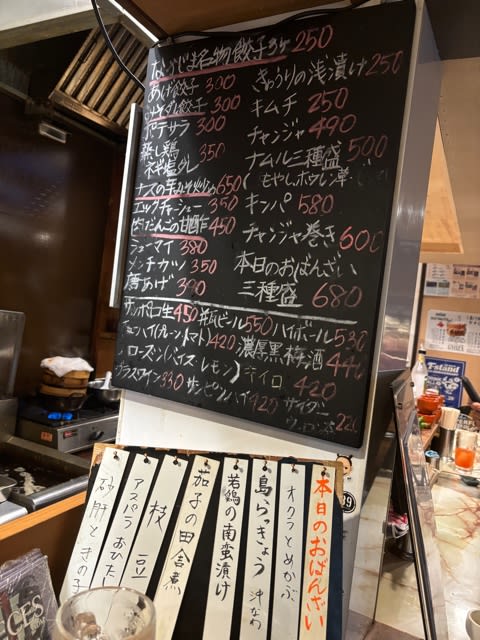 なかじま名物餃子3ケ 250
あげ餃子 300
餃子 300
ポテサラ 300
蒸し鶏 ネギ塩ダレ 350
ナスの辛みそ炒め 650
エッグチャーシュー 350
肉だんごの甘酢 450
シューマイ 380
メンチカツ 350
唐あげ 390
きゅうりの浅漬け 250
キムチ 250
チャンジャ 490
ナムル三種盛 500
(もやし、ホウレン草
キンパ 580
チャンジャ巻き 600
本日のおばんざい
三種盛 680
サッポロ生 450 瓶ビール 550 ハイボール 530
チューハイ(プレーン・トマト) 420 濃厚黒梅酒 440
ローズン(バイス レモン) 420
グラスワイン 330 420 サイダー
本日のおばんざい
オクラとめかぶ
島らっきょう 沖なわ
若鶏の南蛮漬け
茄子の田舎煮
枝豆
アスパラおひたし
砂肝ときの子